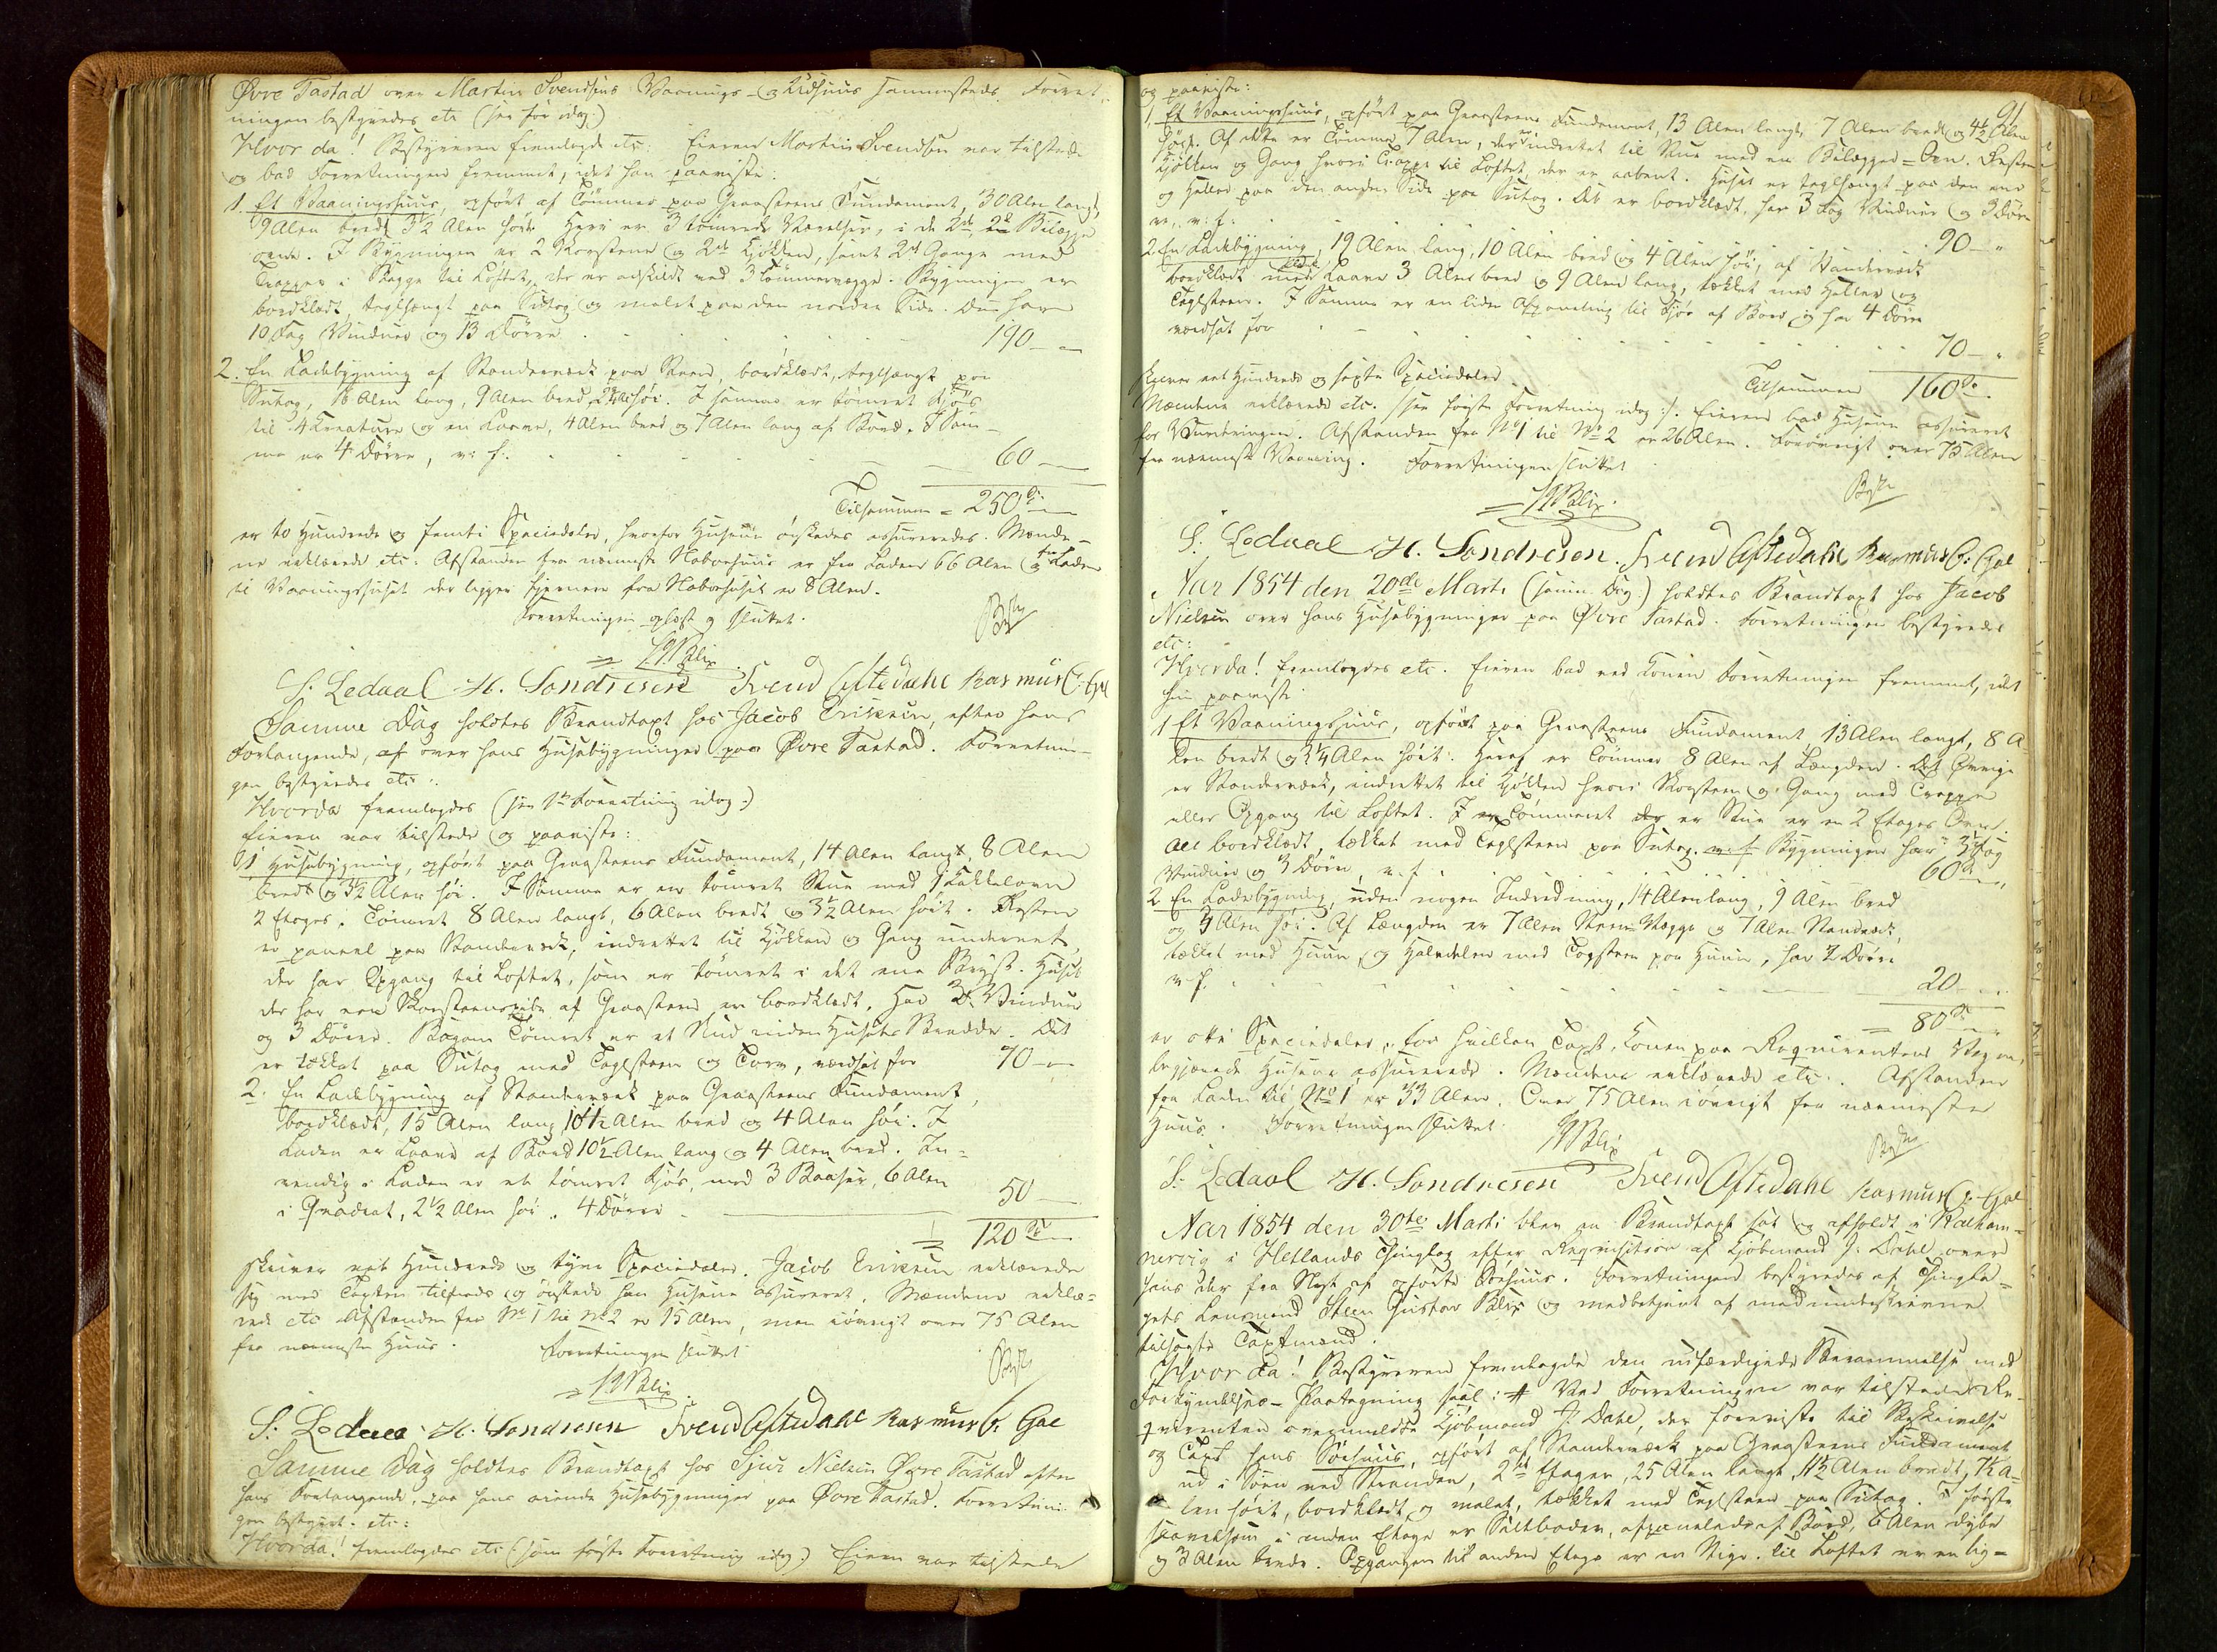 Øvre Tastad over Martin Svendsens Vaanings- og Udhuus sammesteds. Forret-
ningen bestyredes etc (see før idag.)
Hvor da! Bestyreren fremlagde etc: Eieren Martin Svendsen var tilstede
og bad Forretningen fremmet, idet han paaviste:
1. Et Vaaningshuus, opført af Tømmer paa Graasteens Fundament, 30 Alen langt,
9 Alen bredt 3½ Alen høit. Heri er 3 tømrede Værelser, i de 2de Bilægger
ovne. I Bygningen er 2 Skorstene og 2de Kjøkken, samt 2de Gange med
Trapper i Begge til Loftet, der er adskildt ved 3 Tømmervægge. Bygningen er
bordklædt, teglhængt paa Sutag og malet paa den nordre Side. Den har
10 Fag Vinduer og 13 Dørre 190 — "
2. En Ladebygning af Standerværk paa Steen, bordklædt, teglhængt paa
Sutag, 16 Alen lang, 9 Alen bred, høi. I samme er tømret Fjøs
til 4 Kreature og en Laave, 4 Alen bred og 7 Alen lang af Bord. I Sam-
me er 4 Dørre, v: f: 60 —
Tilsammen = 250 Sp
er to Hundrede og femti Speciedaler, hvorfor Husene ønskedes assureredes. Mænde-
ne erklærede etc: Afstanden fra nærmeste Nabohuus er fra Laden 66 Alen og fra Laden
til Vaaningshuset der ligger fjernere fra Nabohuset er 8 Alen.
Forretningen oplæst og sluttet.
SGBlix
S. Ledaal H. Sondresen Svend Askedahl Rasmus C. Gel
Samme Dag holdtes Brandtaxt hos Jacob Eriksen, efter hans
Forlangende, af over hans Husebygninger paa Øvre Tastad. Forretnin-
gen bestyredes etc:
Hvorda fremlagdes (see 1ste Forretning idag:)
Eieren var tilstede og paaviste:
1 Husebygning, opført paa Graasteens Fundament, 14 Alen langt, 8 Alen
bredt og 3½ Alen høi. I Samme er en tømret Stue med 1 Kakkelovn
2 Etages. Tømret 8 Alen langt, 6 Alen bredt og 3½ Alen høit. Resten
er paneel paa Standerværk, indrettet til Kjøkken og Gang
der har Opgang til Loftet, som er tømret i det ene Bryst. Huset
der har en Skorsteenspibe af Graasteen er bordklædt. Har 3 Vinduer
og 3 Dørre. Bagom Tømret er et Skud uden Husets Bredde. Det
er tækket paa Sutag med Teglsteen og Torv, værdsat for 70 —
2. En Ladebygning af Standerværk paa Graasteens Fundament,
bordklædt, 15 Alen lang 10½ Alen bred og 4 Alen høi. I
Laden er Laave af Bord 10½ Alen lang og 4 Alen bred. In-
vendig i Laden er et tømret Fjøs, med 3 Baaser, 6 Alen
i Qvadrat, 2½ Alen høi. 4 Dørre 50 —
120 Sp
skriver eet Hundrede og tyve Speciedaler. Jacob Eriksen erklærede
sig med Taxten tilfreds og ønskede sine Husene assureret. Mændene erklæ-
rede etc Afstanden fra No 1 til No 2 er 15 Alen, men iøvrigt over 75 Alen
fra nærmeste Huus. Forretningen sluttet
SGBlix
S. Ledaal H. Sondresen Svend Askedahl Rasmus C. Gel
Samme Dag holdtes Brandtaxt hos Sjur Nielsen Øvre Tastad efter
hans Forlangende, paa hans eiende Husebygninger paa Øvre Tastad. Forretnin-
gen bestyret. etc:
Hvorda! fremlagdes etc (som første Forretning idag.) Eieren var tilstede
91
og paaviste:
1. Et Vaaningshuus, opført paa Graasteens Fundament, 13 Alen langt, 7 Alen bredt og 4½ Alen
høit. Af dette er Tømmer 7 Alen, der er indrettet til Stue med en Bilægger-Ovn. Resten
Kjøkken og Gang hvori Trappe til Loftet, der er aabent. Huset er teglhængt paa den ene
og Heller paa den anden Side paa Sutag. Det er bordklædt, har 3 Fag Vinduer og 3 Dørre
v: f: 90 — "
2. En Ladebygning, 19 Alen lang, 10 Alen bred og 4 Alen høi, af Standerværk
bordklædt med Laave 3 Alen bred og 9 Alen lang, tækket med Heller og
Teglsteen. I Samme er en liden Afpaneling til Fjøs af Bord og har 4 Dørre
værdsat for 70 — "
Tilsammen 160 Sp.
skriver eet Hundrede og sexti Speciedaler
Mændene erklærede etc. (see første Forretning idag:). Eieren bad Husene assureret
for Vurderingen. Afstanden fra No 1 til No 2 er 26 Alen. Forøvrigt over 75 Alen
fra nærmeste Vaaning. Forretningen sluttet
SGBlix.
S. Ledaal H. Sondresen. Svend Askedahl Rasmus C. Gel
Aar 1854 den 20de Marts (samme Dag:) holdtes Brandtaxt hos Jacob
Nielsen over hans Husebygninger paa Øvre Tastad. Forretningen bestyredes
etc:
Hvorda! fremlagdes etc. Eieren bad ved Konen Forretningen fremmet, idet
hun paaviste
1 Et Vaaningshuus, opført paa Graasteens Fundament 13 Alen langt, 8 A-
len bredt og 3¼ Alen høit. Heraf er Tømmer 8 Alen af Længden. Det Øvrige
er Standerværk, indrettet til Kjøkken hvori Skorsteen og Gang med Trappe
eller Opgang til Loftet. I Tømmeret der er Stue er en 2 Etages Ovn.
Alt bordklædt, tækket med Teglsteen paa Sutag. v: f. Bygningen har 3 Fag
Vinduer og 3 Dørre, v: f. 60 Sp
2 En Ladebygning, uden nogen Indredning, 14 Alen lang, 9 Alen bred
og 4 Alen høi. Af Længden er 7 Alen Steen-Vægge og 7 Alen Standværk,
tækket med Huun og Halvdelen med Tagsteen paa Huun, har 2 Dørre
v: f. 20 —
= 80 Sp
er otti Speciedaler, for hvilken Taxt Konen paa Reqvirentens Vegne,
begjærede Husene assurerede. Mændene erklærede etc. Afstanden
fra Laden til No 1 er 33 Alen. Over 75 Alen iøvrigt fra nærmeste
Huus. Forretningen sluttet.
SGBlix
S. Ledaal H. Sondresen Svend Askedahl Rasmus C. Gel
Aar 1854 den 30te Marts blev en Brandtaxt sat og afholdt i Kalham-
mervig i Hetlands Thinglag efter Reqvisition af Kjøbmand J. Dahl over
hans der fra Nyt af opførte Søehuus. Forretningen bestyredes af Thingla-
gets Lensmand Steen Gustav Blix og medbetjent af med underskrevne
tilsagte Taxtmænd.
Hvor da! Bestyreren fremlagde den udfærdigede Berammelse med
Forkyndelses-Paategning saal: # Ved Forretningen var tilstede Re-
qvirenten ovenmeldte Kjøbmand J. Dahl, der foreviste til Beskrivelse
og Taxt hans Søehuus, opført af Standerværk paa Graasteens Fundament
ud i Søen ved Stranden, 2de Etager, 25 Alen langt, 11½ Alen bredt, 7½ A-
len høit, bordklædt og malet, tækket med Teglsteen paa Sutag. I første
saavelsom i anden Etage er Saltboder, afpanelede af Bord, 6 Alen dybe
og 3 Alen brede. Opgangen til anden Etage er en Stige. til Loftet er en lig-